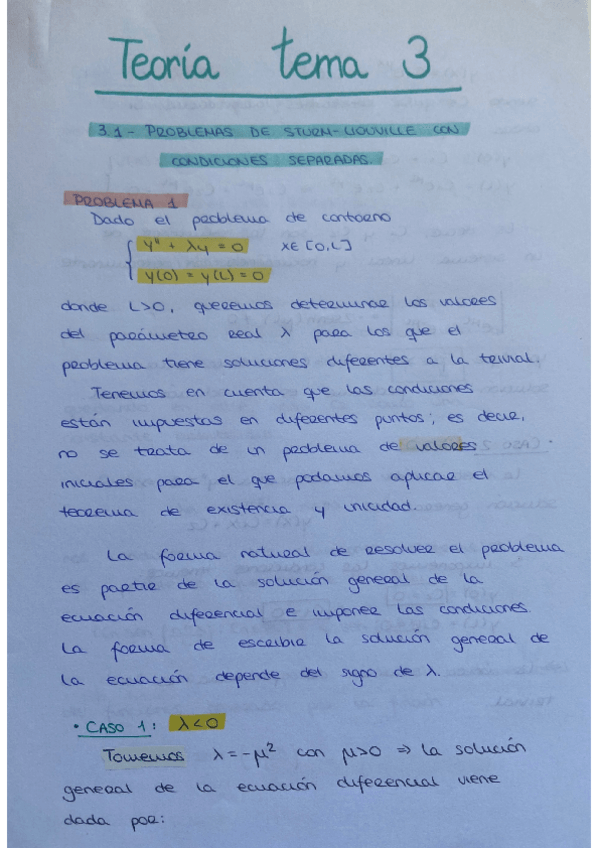 Teoría tema 3
3.1- PROBLEMAS DE STURM-LIOUVILLE CON
CONDICIONES SEPARADAS.
PROBLEMA 1
Dado el problema de contorno
{ y'' + λy = 0 x∈[0,L]
y(0) = y(L) = 0
donde L>0, queremos determinar los valores
del parámetro real λ para los que el
problema tiene soluciones diferentes a la trivial.
Tenemos en cuenta que las condiciones
están impuestas en diferentes puntos; es decir,
no se trata de un problema de valores
iniciales para el que podamos aplicar el
teorema de existencia y unicidad.
La forma natural de resolver el problema
es partir de la solución general de la
ecuación diferencial e imponer las condiciones.
La forma de escribir la solución general de
la ecuación depende del signo de λ.
• CASO 1: λ<0
Tomemos λ=-μ² con μ>0 ⇒ la solución
general de la ecuación diferencial viene
dada por: